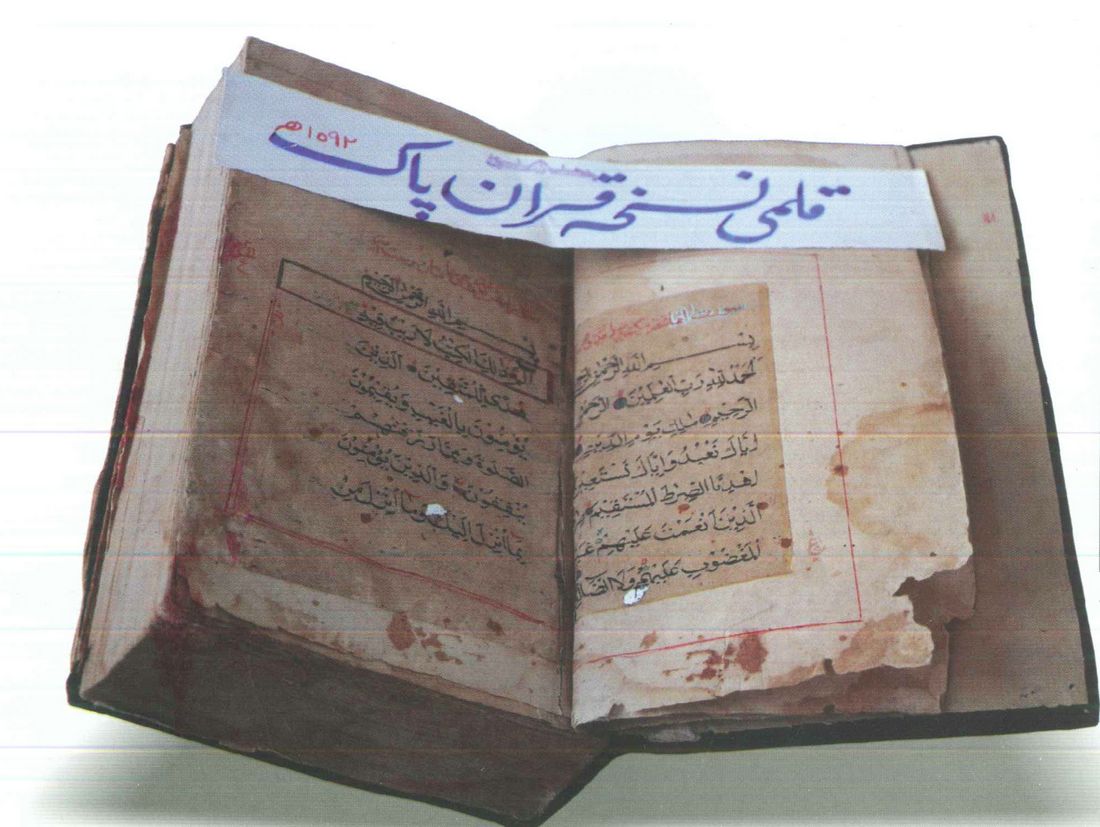 قلمی نسخہ قرآن پاک
۱۰۹۲ھ
بسم الله الرحمن الرحيم
الحمد لله رب العلمين الرحمن
الرحيم ملك يوم الدين
اياك نعبد واياك نستعين
اهدنا الصراط المستقيم
الذين انعمت عليهم غير
المغضوب عليهم ولا الضالين
بسم الله الرحمن الرحيم
الم ذلك الكتب لا ريب فيه
هدى للمتقين الذين
يؤمنون بالغيب ويقيمون
الصلوة ومما رزقنهم
ينفقون والذين يؤمنون
بما انزل اليك وما انزل من